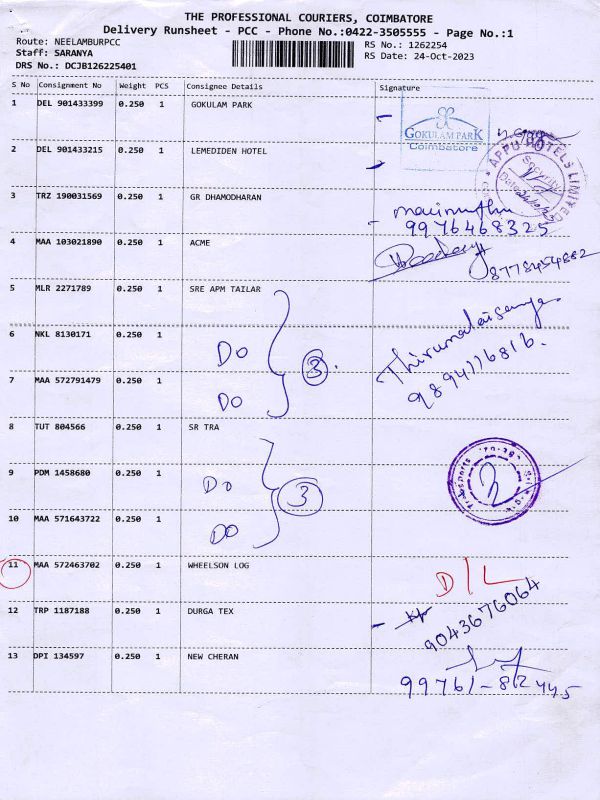 THE PROFESSIONAL COURIERS, COIMBATORE
Delivery Runsheet - PCC - Phone No.:0422-3505555 - Page No.:1
Route: NEELAMBURPCC
RS No.: 1262254
Staff: SARANYA
RS Date: 24-Oct-2023
DRS No.: DCJB126225401
S No Consignment No Weight PCS Consignee Details Signature
1 DEL 901433399 0.250 1 GOKULAM PARK
GOKULAM PARK
Coimbatore
2 DEL 901433215 0.250 1 LEMEDIDEN HOTEL
APPU HOTELS LIMITED
Security
Date
3 TRZ 190031569 0.250 1 GR DHAMODHARAN
marimuthu
9976468325
4 MAA 103021890 0.250 1 ACME
8778454882
5 MLR 2271789 0.250 1 SRE APM TAILAR
6 NKL 8130171 0.250 1 Do
3
Thirumalaisamy
9894776816.
7 MAA 572791479 0.250 1 Do
8 TUT 804566 0.250 1 SR TRA
9 PDM 1458680 0.250 1 Do
3
10 MAA 571643722 0.250 1 Do
11 MAA 572463702 0.250 1 WHEELSON LOG
D/L
12 TRP 1187188 0.250 1 DURGA TEX
9043676064
13 DPI 134597 0.250 1 NEW CHERAN
99761-82445